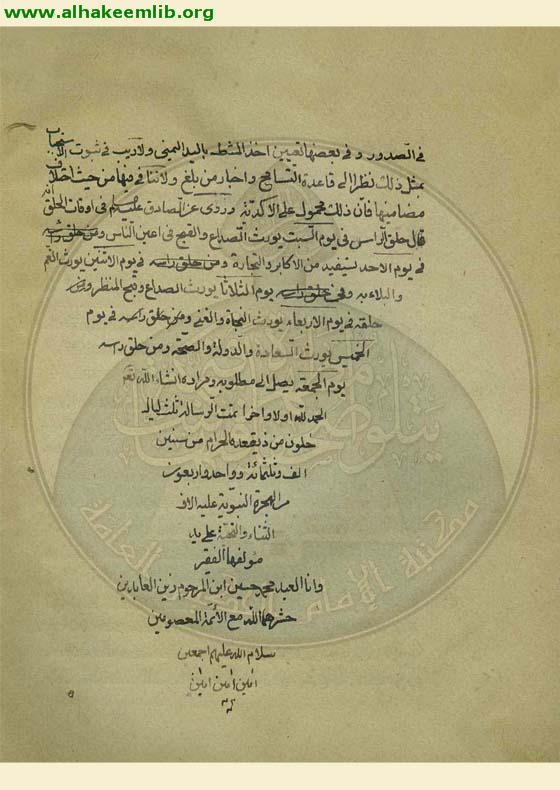 www.alhakeemlib.org
في الصدور و في بعضها تعيين اخذ المشط باليد اليمنى ولا ريب في ثبوت الاستحباب
بمثل ذلك نظرا الى قاعدة التسامح واخبار من بلغ ولا تنافي فيها من حيث اختلاف
مضامينها فان ذلك محمول على الاكدية وروى عن الصادق عليه السلام في اوقات الحلق انه
قال حلق الراس في يوم السبت يورث الصداع والقبح في اعين الناس ومن حلق راسه
في يوم الاحد يستفيد من الاكابر والتجارة ومن حلق راسه في يوم الاثنين يورث الغم
والبلاء به ومن حلق راسه يوم الثلاثا يورث الصداع وقبح المنظر ومن
حلقه في يوم الاربعاء يورث النجاة والغنى ومن حلق راسه في يوم
الخميس يورث السعادة والدولة والصحة ومن حلق راسه
يوم الجمعة يصل الى مطلوبه ومراده انشاء الله تعم
الحمد لله اولا واخرا تمت الرسالة ثلث ليال
خلون من ذيقعده الحرام من سنين
الف وثلثمائة وواحد واربعون
من الهجرة النبوية عليه الاف
الثناء والتحية على يد
مؤلفها الفقير
وانا العبد محمد حسين ابن المرحوم زين العابدين
حشرهما الله مع الأئمة المعصومين
سلام الله عليهم اجمعين
امين امين امين
مكتبة الإمام الحكيم العامة